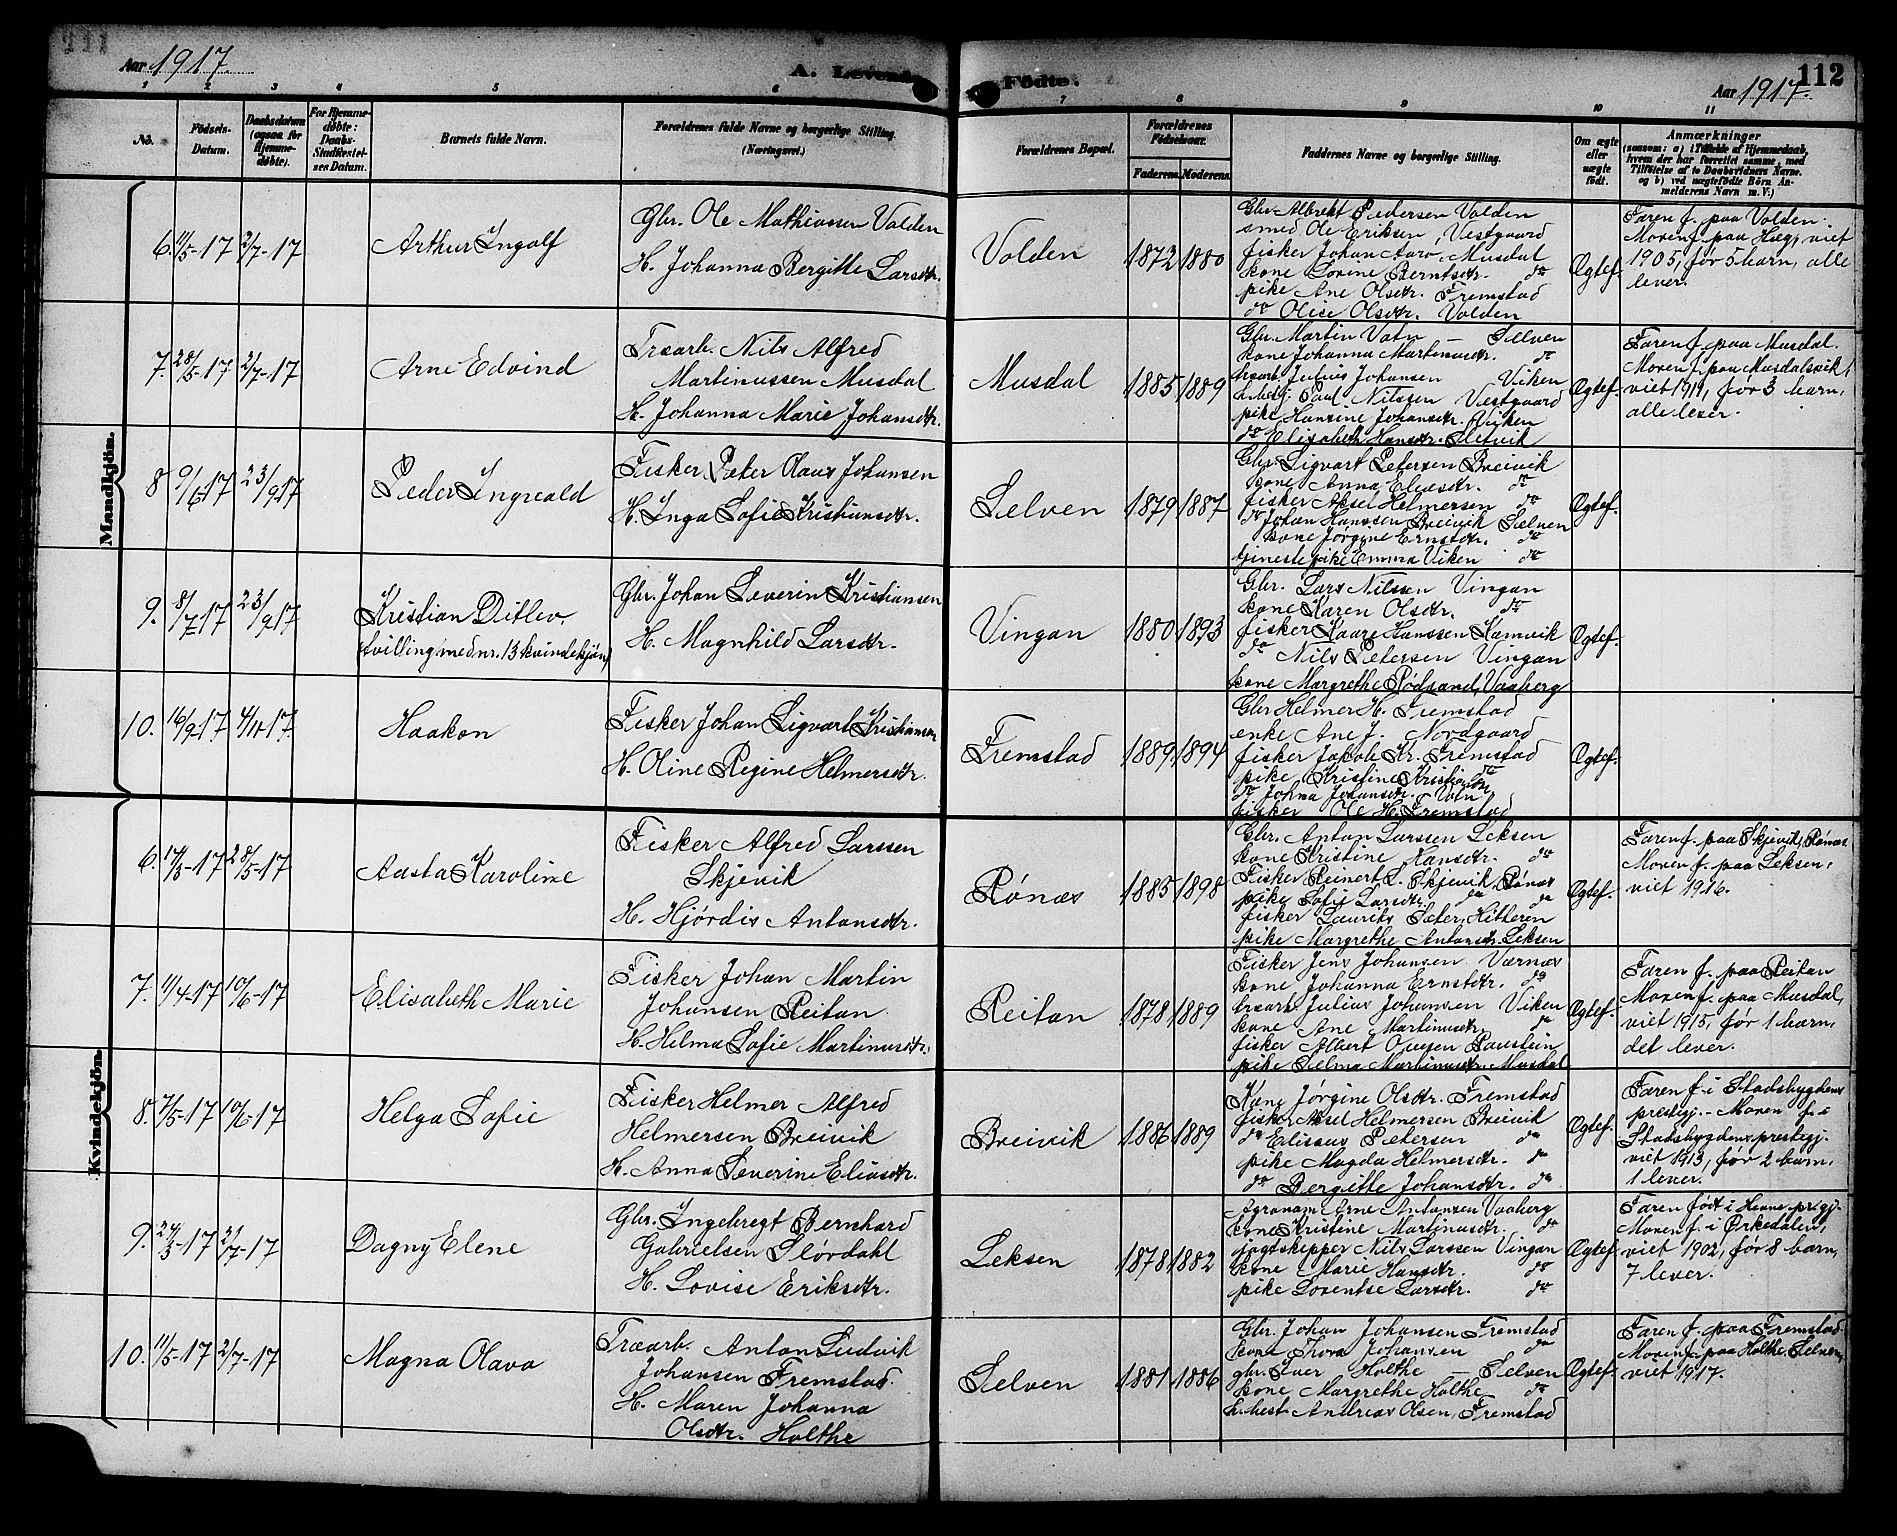 Aar 1917.
A. Levende
Födte.
112
Aar 1917.
1 2 3 4 5 6 7 8 9 10 11
No.
Födsels-
Datum.
Daabsdatum
(ogsaa for
Hjemme-
døbte).
For Hjemme-
døbte:
Daabs-
Stadfæstel-
ses Datum.
Barnets fulde Navn.
Forældrenes fulde Navne og borgerlige Stilling.
(Næringsvei.)
Forældrenes Bopæl.
Forældrenes
Födselsaar.
Faderens. Moderens.
Faddernes Navne og borgerlige Stilling.
Om ægte
eller
uægte
født.
Anmærkninger
(saasom: a) i Tilfælde af Hjemmedaab,
hvem der har forrettet samme, med
Tilföielse af to Daabsvidners Navne.
og b) ved uægtefödte Börn An-
melderens Navn m. V.)
Mandkjön.
6. 11/5-17 2/7-17
Arthur Ingolf
Gbr. Ole Mathiassen Volden
H. Johanna Bergitte Larsdtr.
Volden
1872 1880
Gbr. Albrekt Pedersen Volden
smed Ole Eriksen, Vestgaard
fisker Johan Aarv. Musdal
kone Lovine Berntsdtr. do
pike Ane Olsdtr. Fremstad
do Olise Olsdtr. Volden
Ægtef.
Faren f. paa Volden.
Moren f. paa Hæg, viet
1905, før 5 barn, alle
lever.
7. 28/5-17 2/7-17
Arne Edvind
Træarb. Nils Alfred
Martinussen Musdal
H. Johanna Marie Johansdtr.
Musdal
1885 1889
Gbr. Martin Vatn – Selven
kone Johanna Martinusdtr. do
træarb. Julius Johansen Viken
Paul Nilssen Vestgaard
pike Hansine Johansdtr. Viken
do Elisabeth Hansdtr. Selvik
Ægtef.
Faren f. paa Musdal.
Moren f. paa Musdalsvik,
viet 1911, før 3 barn,
alle lever.
8 9/6 17 23/9 17
Peder Ingvald
Fisker Peter Olaus Johansen
H. Inga Sofie Kristiansdtr.
Selven
1879 1887
Gbr. Sigvart Petersen Breivik
kone Anna Eliasdtr. do
fisker Aksel Helmersen do
do Johan Hanssen Breivik Selven
kone Jørgine Ernstdtr. do
tjenestepike Emma Viken do
Ægtef.
9. 8/7 17 23/9 17
Kristian Ditlev.
(tvilling med nr. 13 kvindekjøn)
Gbr. Johan Severin Kristiansen
H. Magnhild Larsdtr.
Vingan
1880 1893
Gbr. Lars Nilssen Vingan
kone Karen Olsdtr. do
fisker Kaare Hanssen Kamvik
do Nils Petersen Vingan
kone Margrethe Rødsand, Vaaberg
Ægtef.
10. 16/9-17 4/11-17
Haakon
Fisker Johan Sigvart Kristiansen
H. Oline Regine Helmersdtr.
Fremstad
1889 1894
Gbr Helmer H. Fremstad
enke Ane J. Nordgaard
fisker Jakob Kr. Fremstad
pike Kristine Kristiansdtr do
do Johna Johansdtr. Vatn
fisker Ole H. Fremstad
Ægtef.
Kvindekjön.
6. 17/3-17 28/5-17
Aasta Karoline
Fisker Alfred Larssen
Skjevik
H. Hjørdis Antonsdtr.
Rønæs
1885 1898
Gbr. Anton Larssen Leksen
kone Kristine Hansdtr. do
Fisker Reinert L. Skjevik, Rønæs
pike Sofie Larsdtr. do do
fisker Laurits Sæter, Hitteren
pike Margrethe Antonsdtr. Leksen
Ægtef.
Faren f. paa Skjevik, Rønæs
Moren f. paa Leksen,
viet 1916.
7. 11/4-17 10/6-17
Elisabeth Marie
Fisker Johan Martin
Johansen Reitan
H. Helma Sofie Martinusdtr.
Reitan
1878 1889
Fisker Jens Johansen Værnæs
kone Johanna Ernstdtr. do
træarb. Julius Johansen Viken
kone Ane Martinusdtr. do
fisker Albert Ouesen Raustein
pike Selma Martinusdtr. Musdal
Ægtef.
Faren f. paa Reitan
Moren f. paa Musdal,
viet 1915, før 1 barn,
det lever.
8. 7/5-17 10/6-17
Helga Sofie
Fisker Helmer Alfred
Helmersen Breivik
H. Anna Severine Eliasdtr.
Breivik
1886 1889
Kone Jørgine Olsdtr. Fremstad
fisker Aksel Helmersen Breivik
do Elisæus Petersen do
pike Magda Helmersdtr. do
do Bergitte Johansdtr. do
Ægtef.
Faren f. i Stadsbygdens
prestegj. – Moren f. i
Stadsbygdens prestegj.
viet 1913, før 2 barn,
1 lever.
9. 24/3-17 2/7-17
Dagny Elene
Gbr. Ingebregt Bernhard
Gabrielsen Slørdahl
H. Lovise Eriksdtr.
Leksen
1878 1882
Agronom Arne Antonsen Vaaberg
kone Kristine Martinusdtr. do
jagtskipper Nils Larssen Vingan
kone Marie Hansdtr. do
pike Lorentse Larsdtr. do
Ægtef.
Faren født i Hevne prgj.
Moren f. i Ørkedalen,
viet 1902, før 8 barn,
7 lever.
10. 11/5-17 2/7-17
Magna Olava
Træarb. Anton Ludvik
Johansen Fremstad.
H. Maren Johanna
Olsdtr. Holthe
Selven
1881 1886
Gbr. Johan Johansen Fremstad
kone Thora Johansen do
gbr. Iver Holthe – Selven
kone Margrethe Holthe do
Andreas Olsen, Fremstad
Ægtef.
Faren f. paa Fremstad
Moren f. paa Holthe, Selven,
viet 1917.